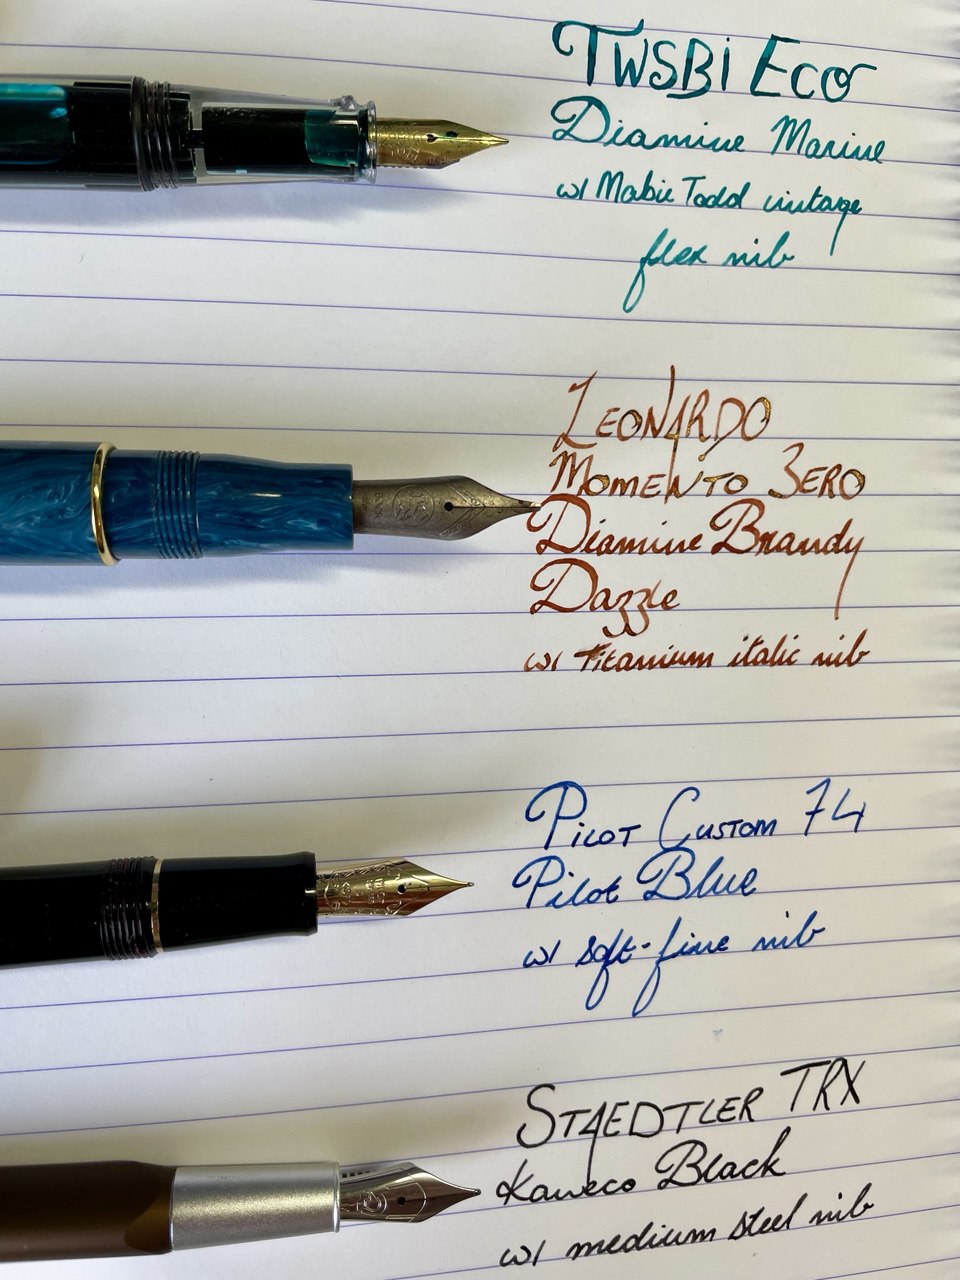 TWSBi Eco
Diamine Marine
w/ Mabie Todd vintage
flex nib
LEONARDO
MOMENTO ZERO
Diamine Brandy
Dazzle
w/ titanium italic nib
PILOT CUSTOM 74
Pilot Blue
w/ soft-fine nib
STAEDTLER TRX
Kaweco Black
w/ medium steel nib